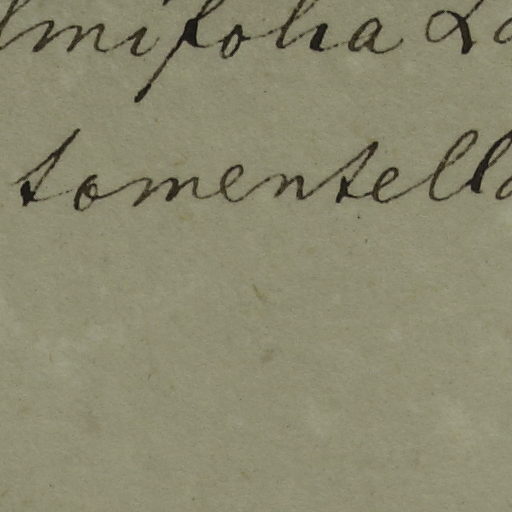 lmifolia La
tomentella